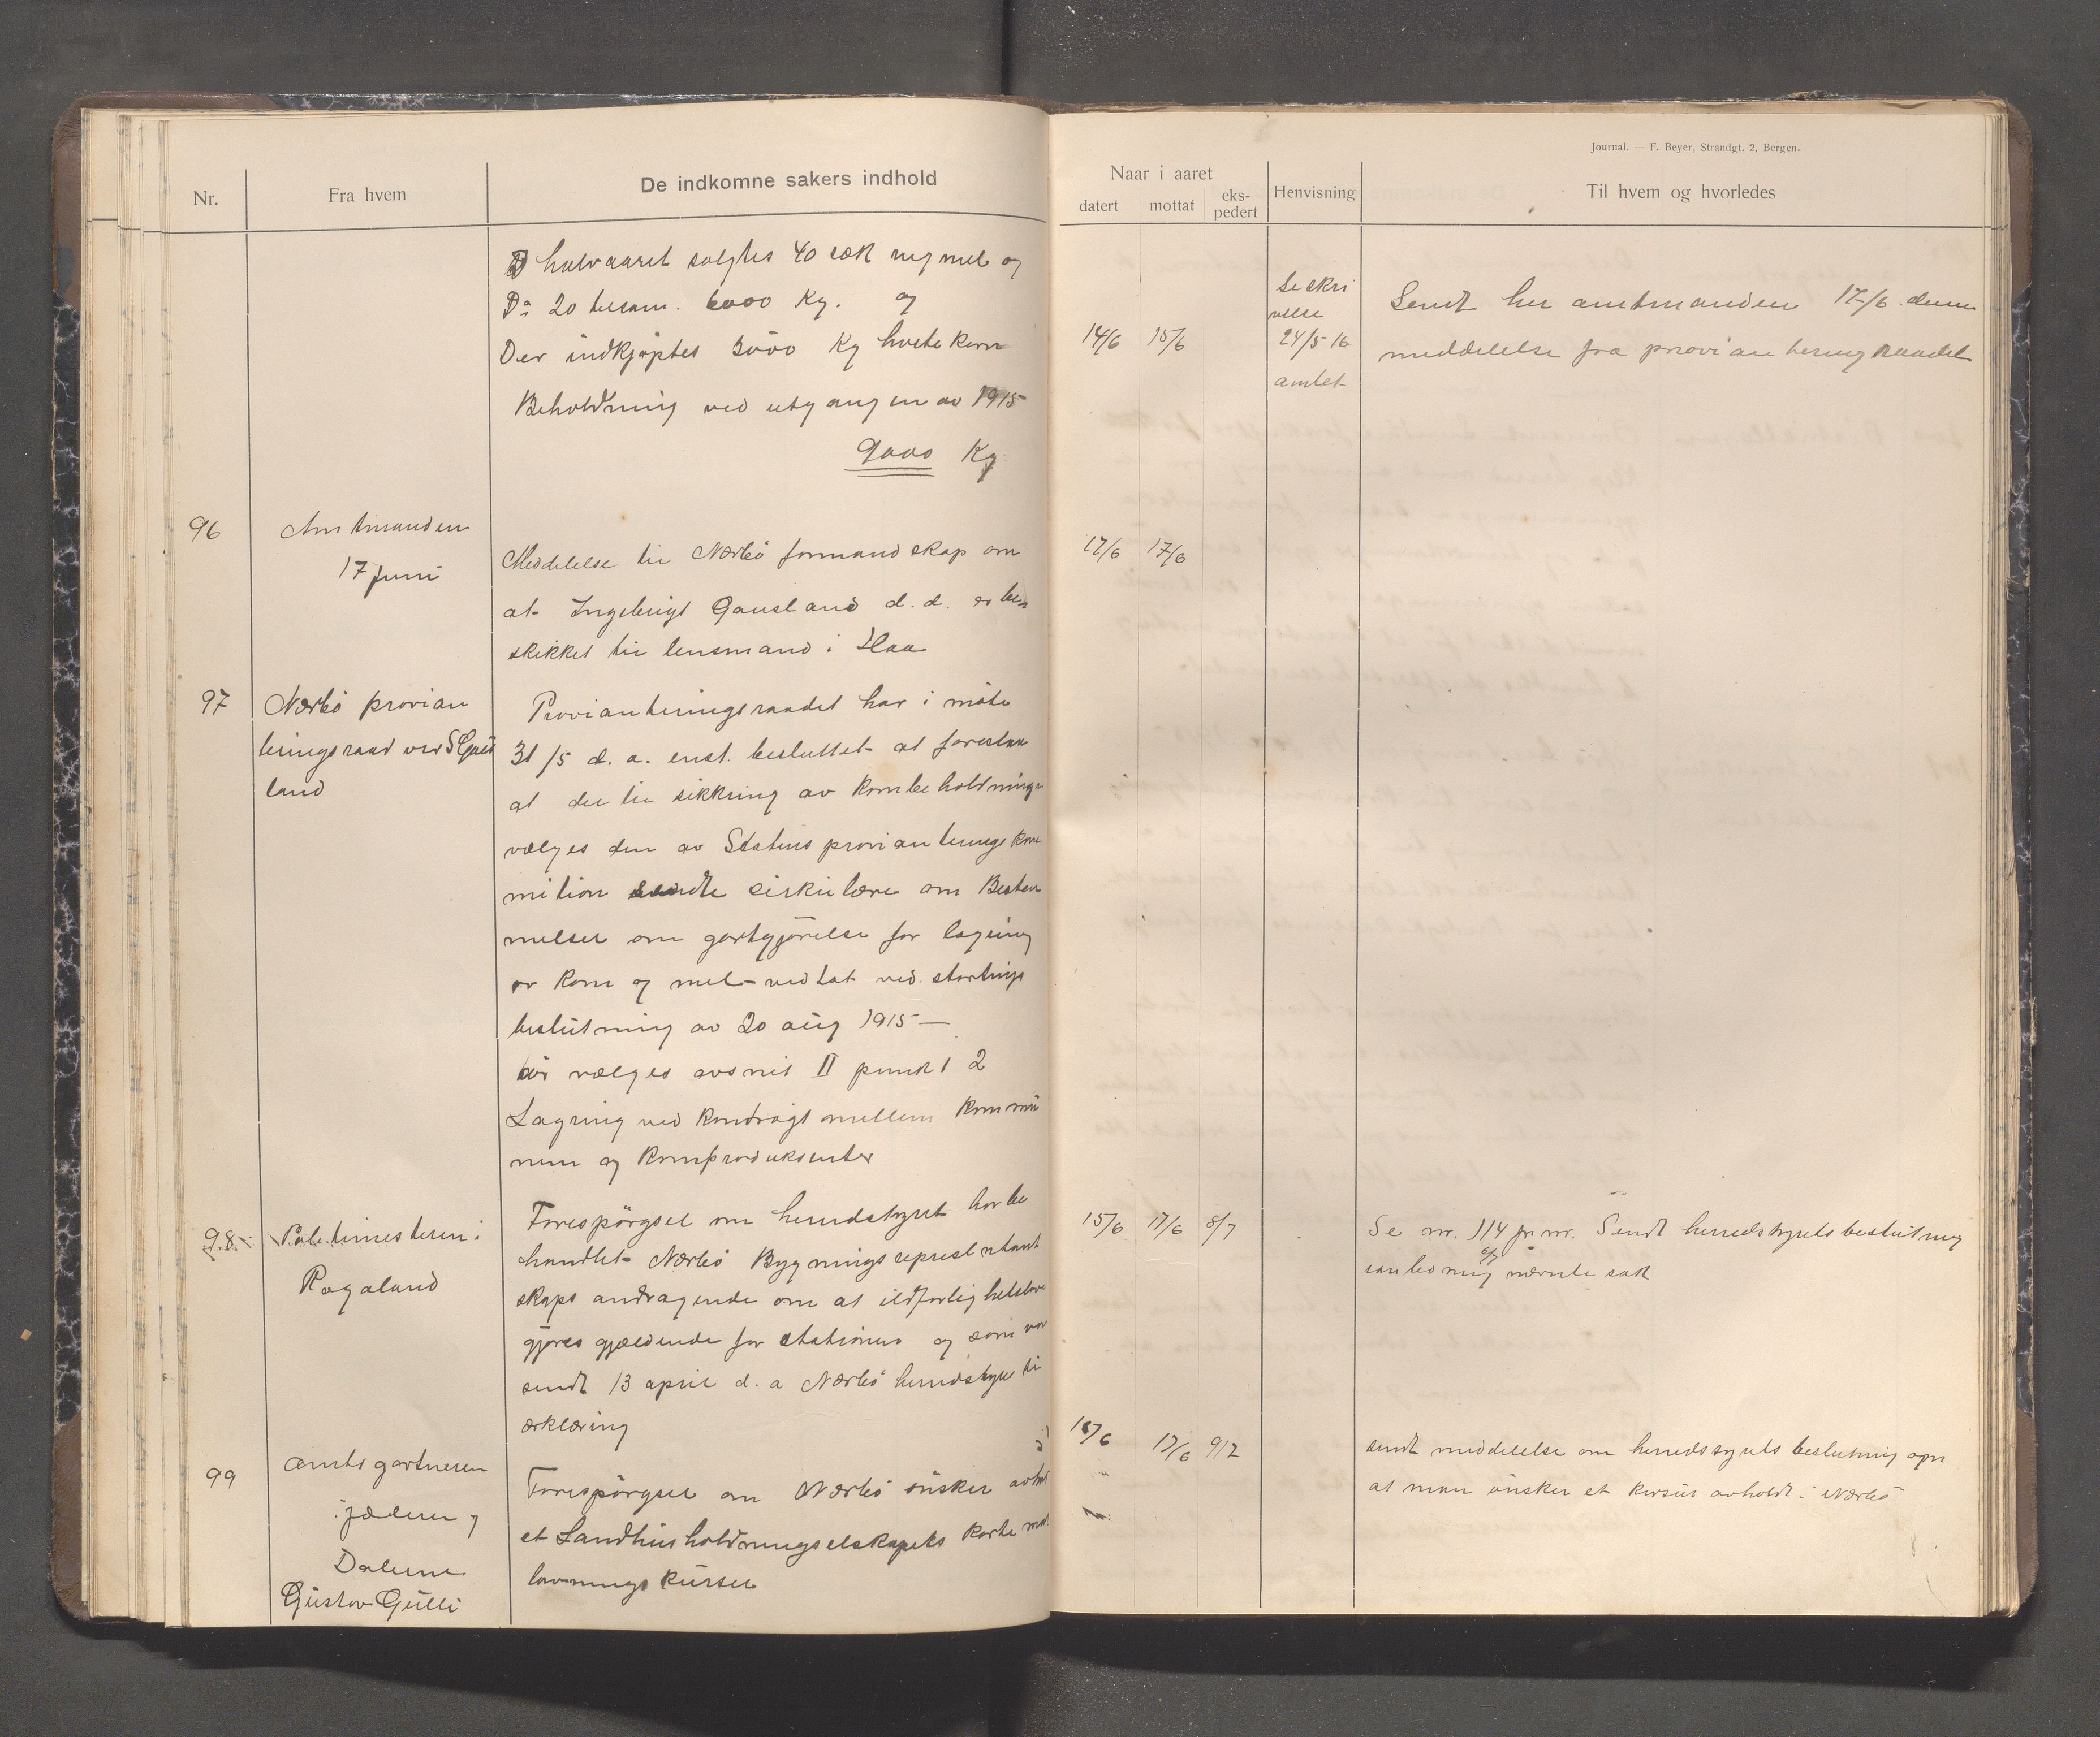 Journal. — F. Beyer, Strandgt. 2, Bergen.
Nr.
Fra hvem
De indkomne sakers indhold
Naar i aaret
datert
mottat
eks-
pedert
Henvisning
Til hvem og hvorledes
halvaaret solgtes 40 sæk rugmel og
Do 20 tilsam. 6000 Kg. og
Der indkjøptes 3000 Kg hvetekorn
Beholdning ved utgangen av 1915
9000 Kg
14/6 15/6
Se skri
velse
24/5 16
amtet
Sendt hr amtmanden 17/6 denne
meddelelse fra provianteringsraadet
96
Amtmanden
17 juni
Meddelelse til Nærbö formandskap om
at Ingebrigt Gausland d.d. er be-
skikket til lensmand i Haa
17/6 17/6
97
Nærbö provian
teringsraad ved S
land
Provianteringsraadet har i möte
31/5 d.a. enst. besluttet at foreslaa
at der til sikkring av kornbeholdninge
vælges den av Statens provianteringskom
mition sendte sirkulære om Bestem
melser om godtgjörelse for lagring
av korn og mel vedtat ved stortings
beslutning av 20 aug 1915 —
bör vælges avsnit II punkt 2
Lagring ved kontragt mellem kommu
nen og kornprodusenter
98
Politimesteren i
Rogaland
Forespörgsel om herredstyret har be
handlet Nærbö Bygningsrepresentant
skaps andragende om at ildfarlighetslove
gjøres gjældende for stationen og som var
sendt 13 april d.a Nærbö herredstyre til
ærklæring
15/6 17/6 8/7
Se nr. 114 jr nr. Sendt herredstyrets beslutning
i anledning nævnte sak
99
Amtsgartneren
i jæderen og
Dalerne
Gustav Gulli
Forespörgsel om Nærbö önsker avhol
et Landhusholdningselskapets korte mat
lavningskurser
17/6 9/7
sendt meddelelse om herredsstyrets beslutning
at man önsker et kursus avholdt i Nærbö